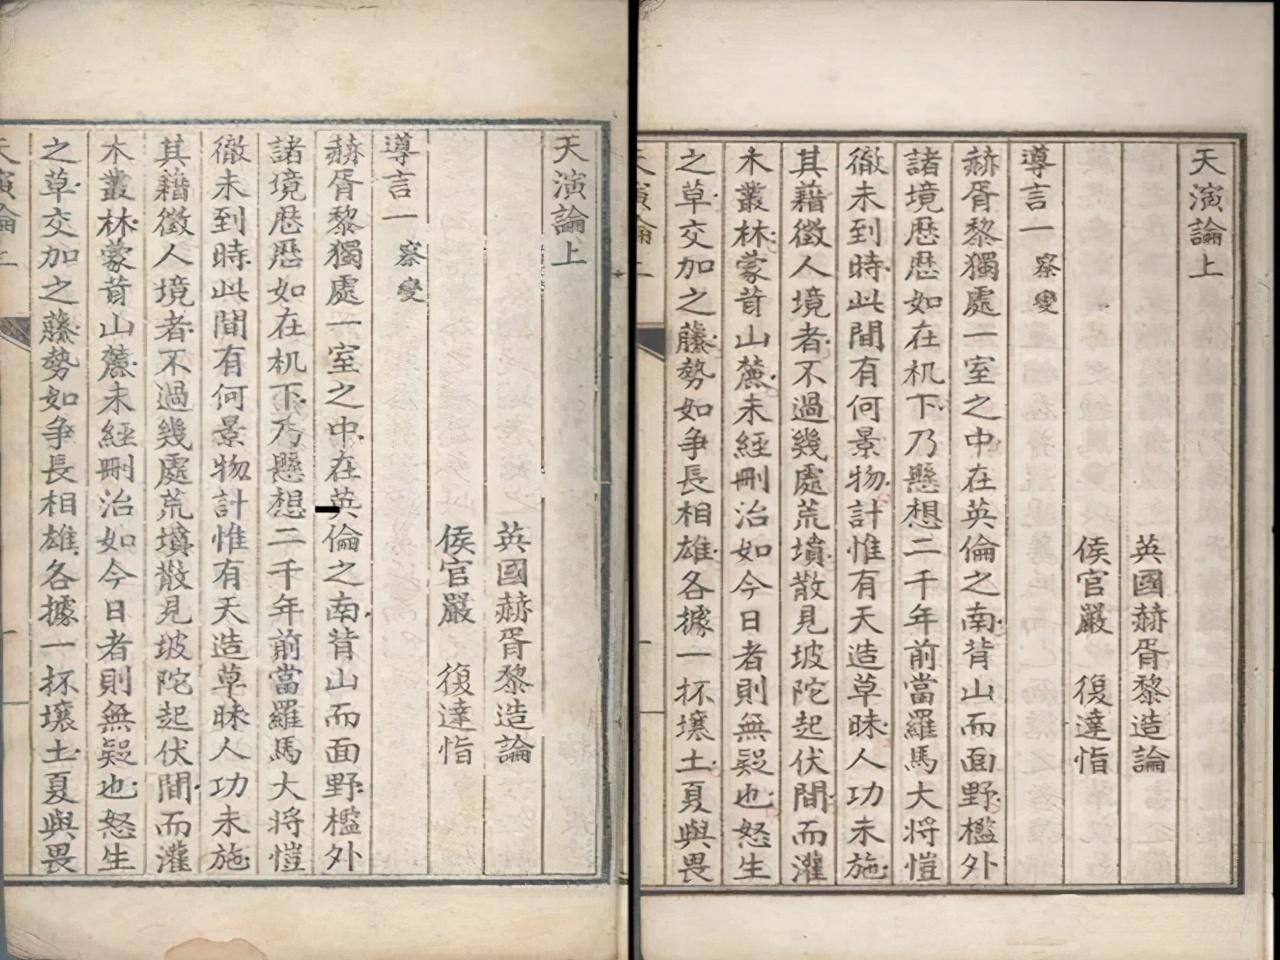 天演論上
英國赫胥黎造論
侯官嚴 復達恉
導言一 察變
赫胥黎獨處一室之中在英倫之南背山而面野檻外
諸境厯厯如在机下乃懸想二千年前當羅馬大將愷
徹未到時此間有何景物計惟有天造草昧人功未施
其藉徵人境者不過幾處荒墳散見坡陀起伏間而灌
木叢林蒙茸山麓未經刪治如今日者則無疑也怒生
之草交加之藤勢如爭長相雄各據一抔壤土夏與畏
天演論上
天演論上
英國赫胥黎造論
侯官嚴 復達恉
導言一 察變
赫胥黎獨處一室之中在英倫之南背山而面野檻外
諸境厯厯如在机下乃懸想二千年前當羅馬大將愷
徹未到時此間有何景物計惟有天造草昧人功未施
其藉徵人境者不過幾處荒墳散見坡陀起伏間而灌
木叢林蒙茸山麓未經刪治如今日者則無疑也怒生
之草交加之藤勢如爭長相雄各據一抔壤土夏與畏
天演論上